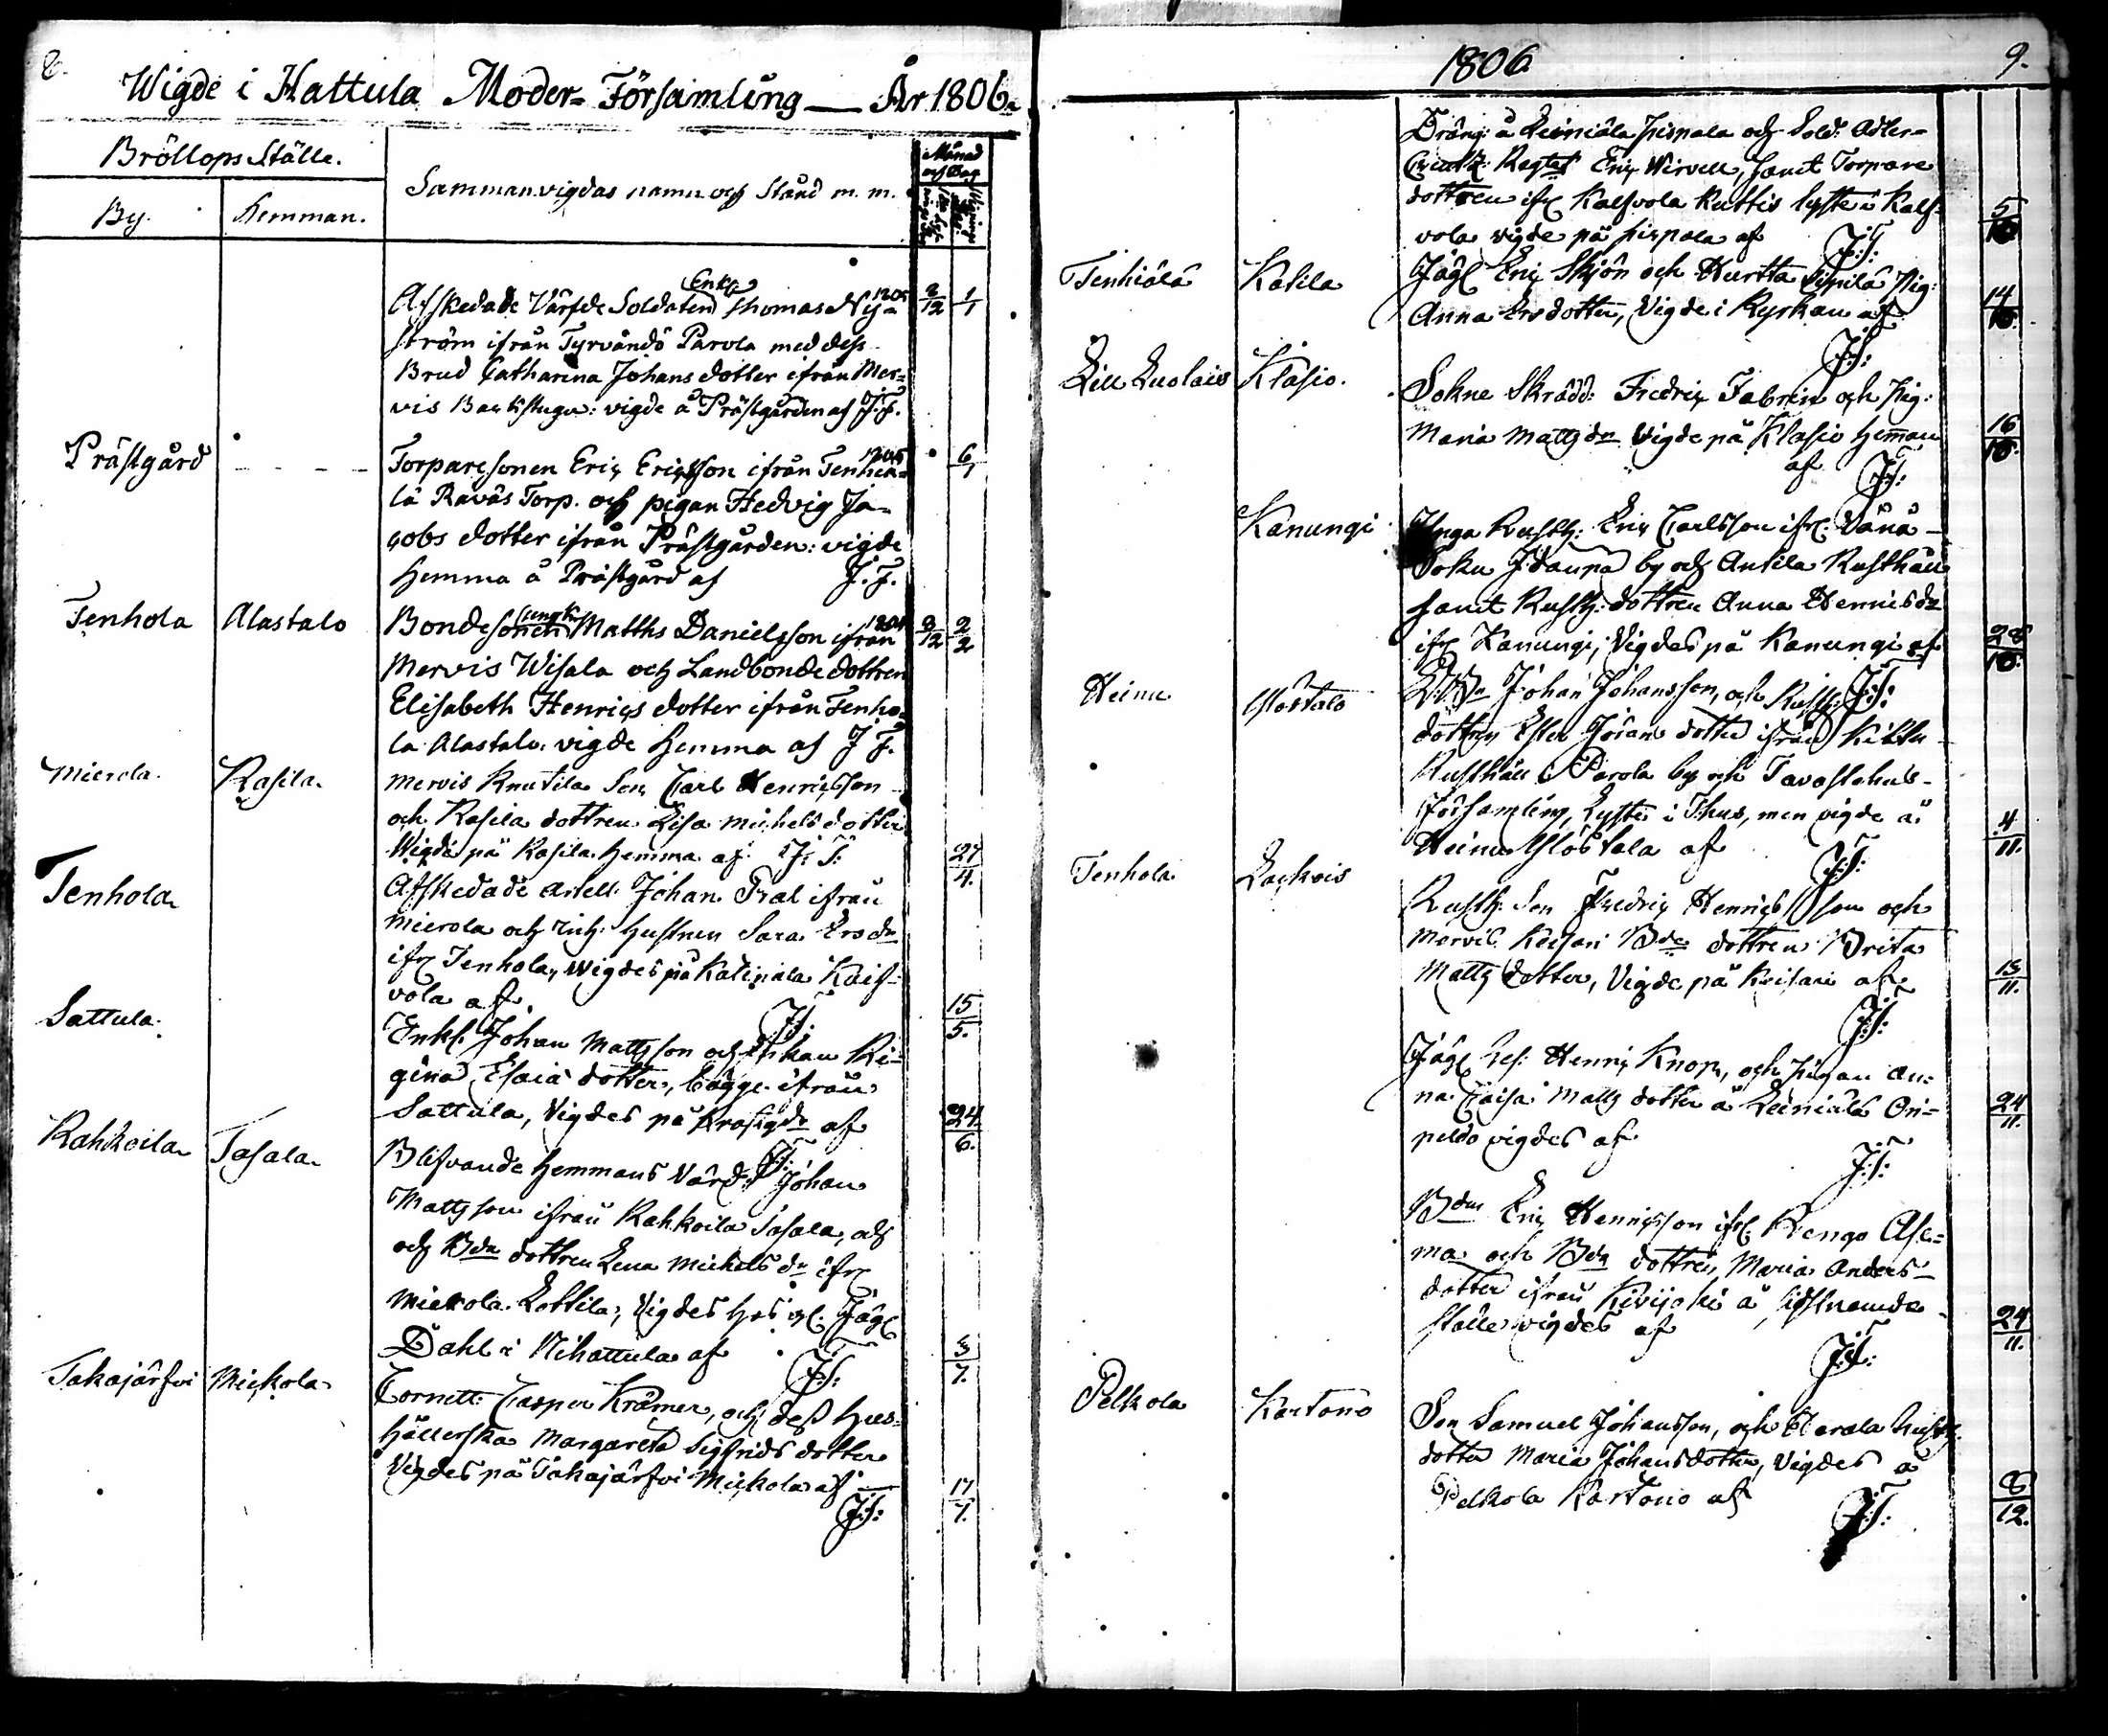 8.
Wigde i Hattula Moder-Församling — År 1806.
Bröllops Ställe.
By. Hemman.
Sammanvigdas namn och Stånd m. m.
Månad och Dag
Enkl. 1805
Afskedade Värfde Soldaten Thomas Ny- 8/12 1/1
ström ifrån Tyrvändö Parola med dess
Brud Catharina Johans dotter ifrån Mer-
vis Backstugu: vigde å Prästgården af J. F.
1805
Prästgård - - - - Torparesonen Eric Ericsson ifrån Tenhiä- 6/1
lä Raväs Torp. och pigan Hedvig Ja-
cobs dotter ifrån Prästgården: vigde
hemma å Prästgård af J. F.
ungk. 1804
Tenhola Alastalo Bondesonen Matths Danielsson ifrån 8/12 2/2
Mervis Wisala och Landbonde dottren
Elisabeth Henrics dotter ifrån Tenho-
la Alastalo. vigde hemma af J F.
Mierola. Rasila. Mervis Knutila Son Carl Henricsson
och Rasila dottren Lisa Michels dotter
Wigde på Rasila hemma af J: F: 27/4.
Tenhola Afskedade Artell. Johan Pral ifrån
Mierola och Inh. hustrun Sara Ersdr
ifr. Tenhola, Wigdes på Katinala
vola af J: 15/5.
Sattula. Enkl. Johan Mattsson och Enkan Re-
gina Esaiä dotter, bägge ifrån
Sattula, Vigdes på af 24/6.
Rahkoila Tasala Blifvande hemmans Värd: Johan
Mattsson ifrån Rahkoila Tasala, och
och Bde dottren Lena Michels dr ifr.
Mierola Lottila, Vigdes hos
Dahl i Nihattula af J: 3/7.
Takajärfvi Mickola Cornett: Casper Krämer, och dess hus-
hållerska Margareta Sigfrids dotter
Vigdes på Takajärfvi Mickola af — 17/7.
J:
1806 9.
Dräng: å Leiniälä Pispala och Sold: Adler-
Creutz: Regtet Eric Wirvell, samt Torpare
dottren ifr. Kalfvola Ruttis lyste i Kalf-
vola vigde på Pispala af J: 5/10.
Tenhiälä Katila Jäg. Eric Skjön och Hurtta Sippilä Pig:
Anna Ersdotter, Vigde i Kyrkan af 14/10.
J:
Lill Luolais Klasio. Sokne Skrädd: Fredric Fabrin och Pig:
Maria Matts dr Vigde på Klasio hemman 16/10.
af J:
Kanungi Unga Rusth: Eric Carlsson ifr. Vånå-
Soku by och Antila Rusthåll
samt Rusth: dottren Anna Hennis dr
ifr. Kanungi, Vigdes på Kanungi af 28/10.
Heinu Ylöstalo Johan Johansson, och Rusth: J:
dottren Ester Jöran dotter ifrån
Rusthåll i Parola by och Tavastehus-
församling, Lyste i Thus, men vigde å
Heinu Ylöstalo af J: 4/11.
Tenhola Lackois Rusth: Son Fredric Henrics son och
Mervis Keisari Bde dottren Brita
Matts dotter, Vigde på Keisari af 13/11.
J:
Jäg. Ref: Henric Knop, och pigan An-
na Caisa Matts dotter å Leiniälä On-
peldo vigdes af 24/11.
J:
Bden Eric Henricsson ifr. Rengo Ase-
ma och Bde dottren Maria Anders-
dotter ifrån Kivijoki å sistnemde
ställe vigdes af 24/11.
J:
Pelkola Kartano Son Samuel Johansson, och Herala Rusth.
dotter Maria Johansdotter, Vigdes å
Pelkola Kartano af 8/12.
J: